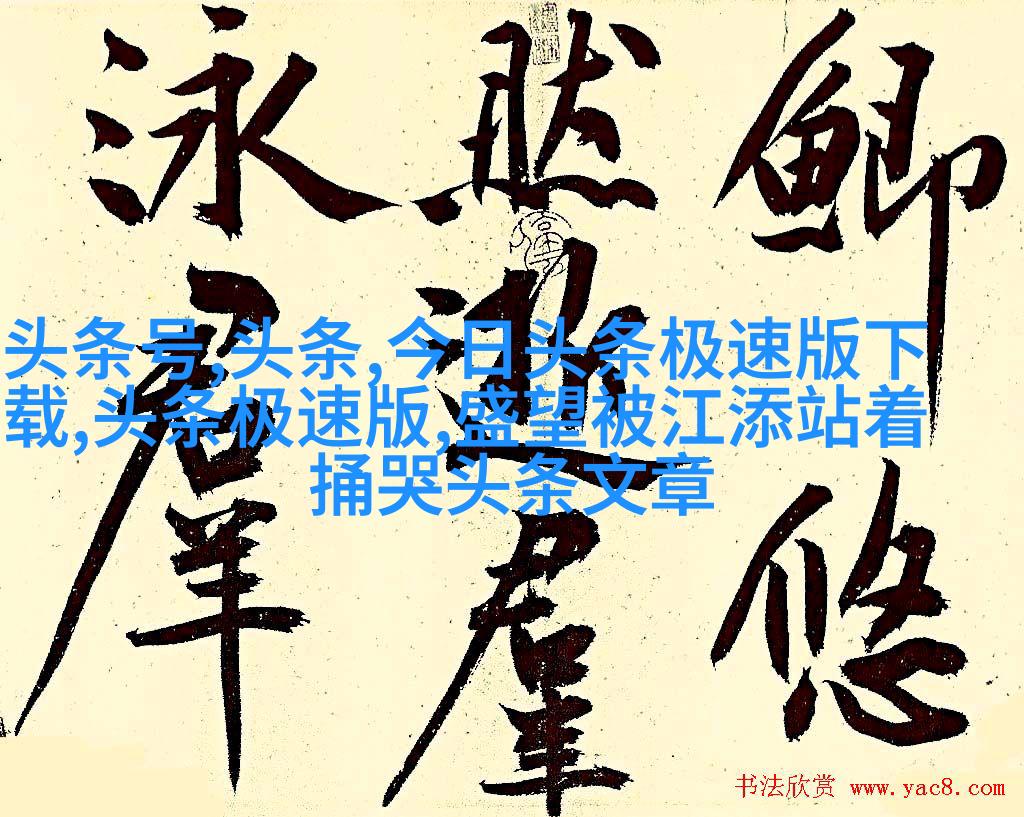 鲫悠
然羣
泳羣
头条号,头条,今日头条极速版下
载,头条极速版,盛望被江添站着
捅哭头条文章
书法欣赏 www.yac8.com